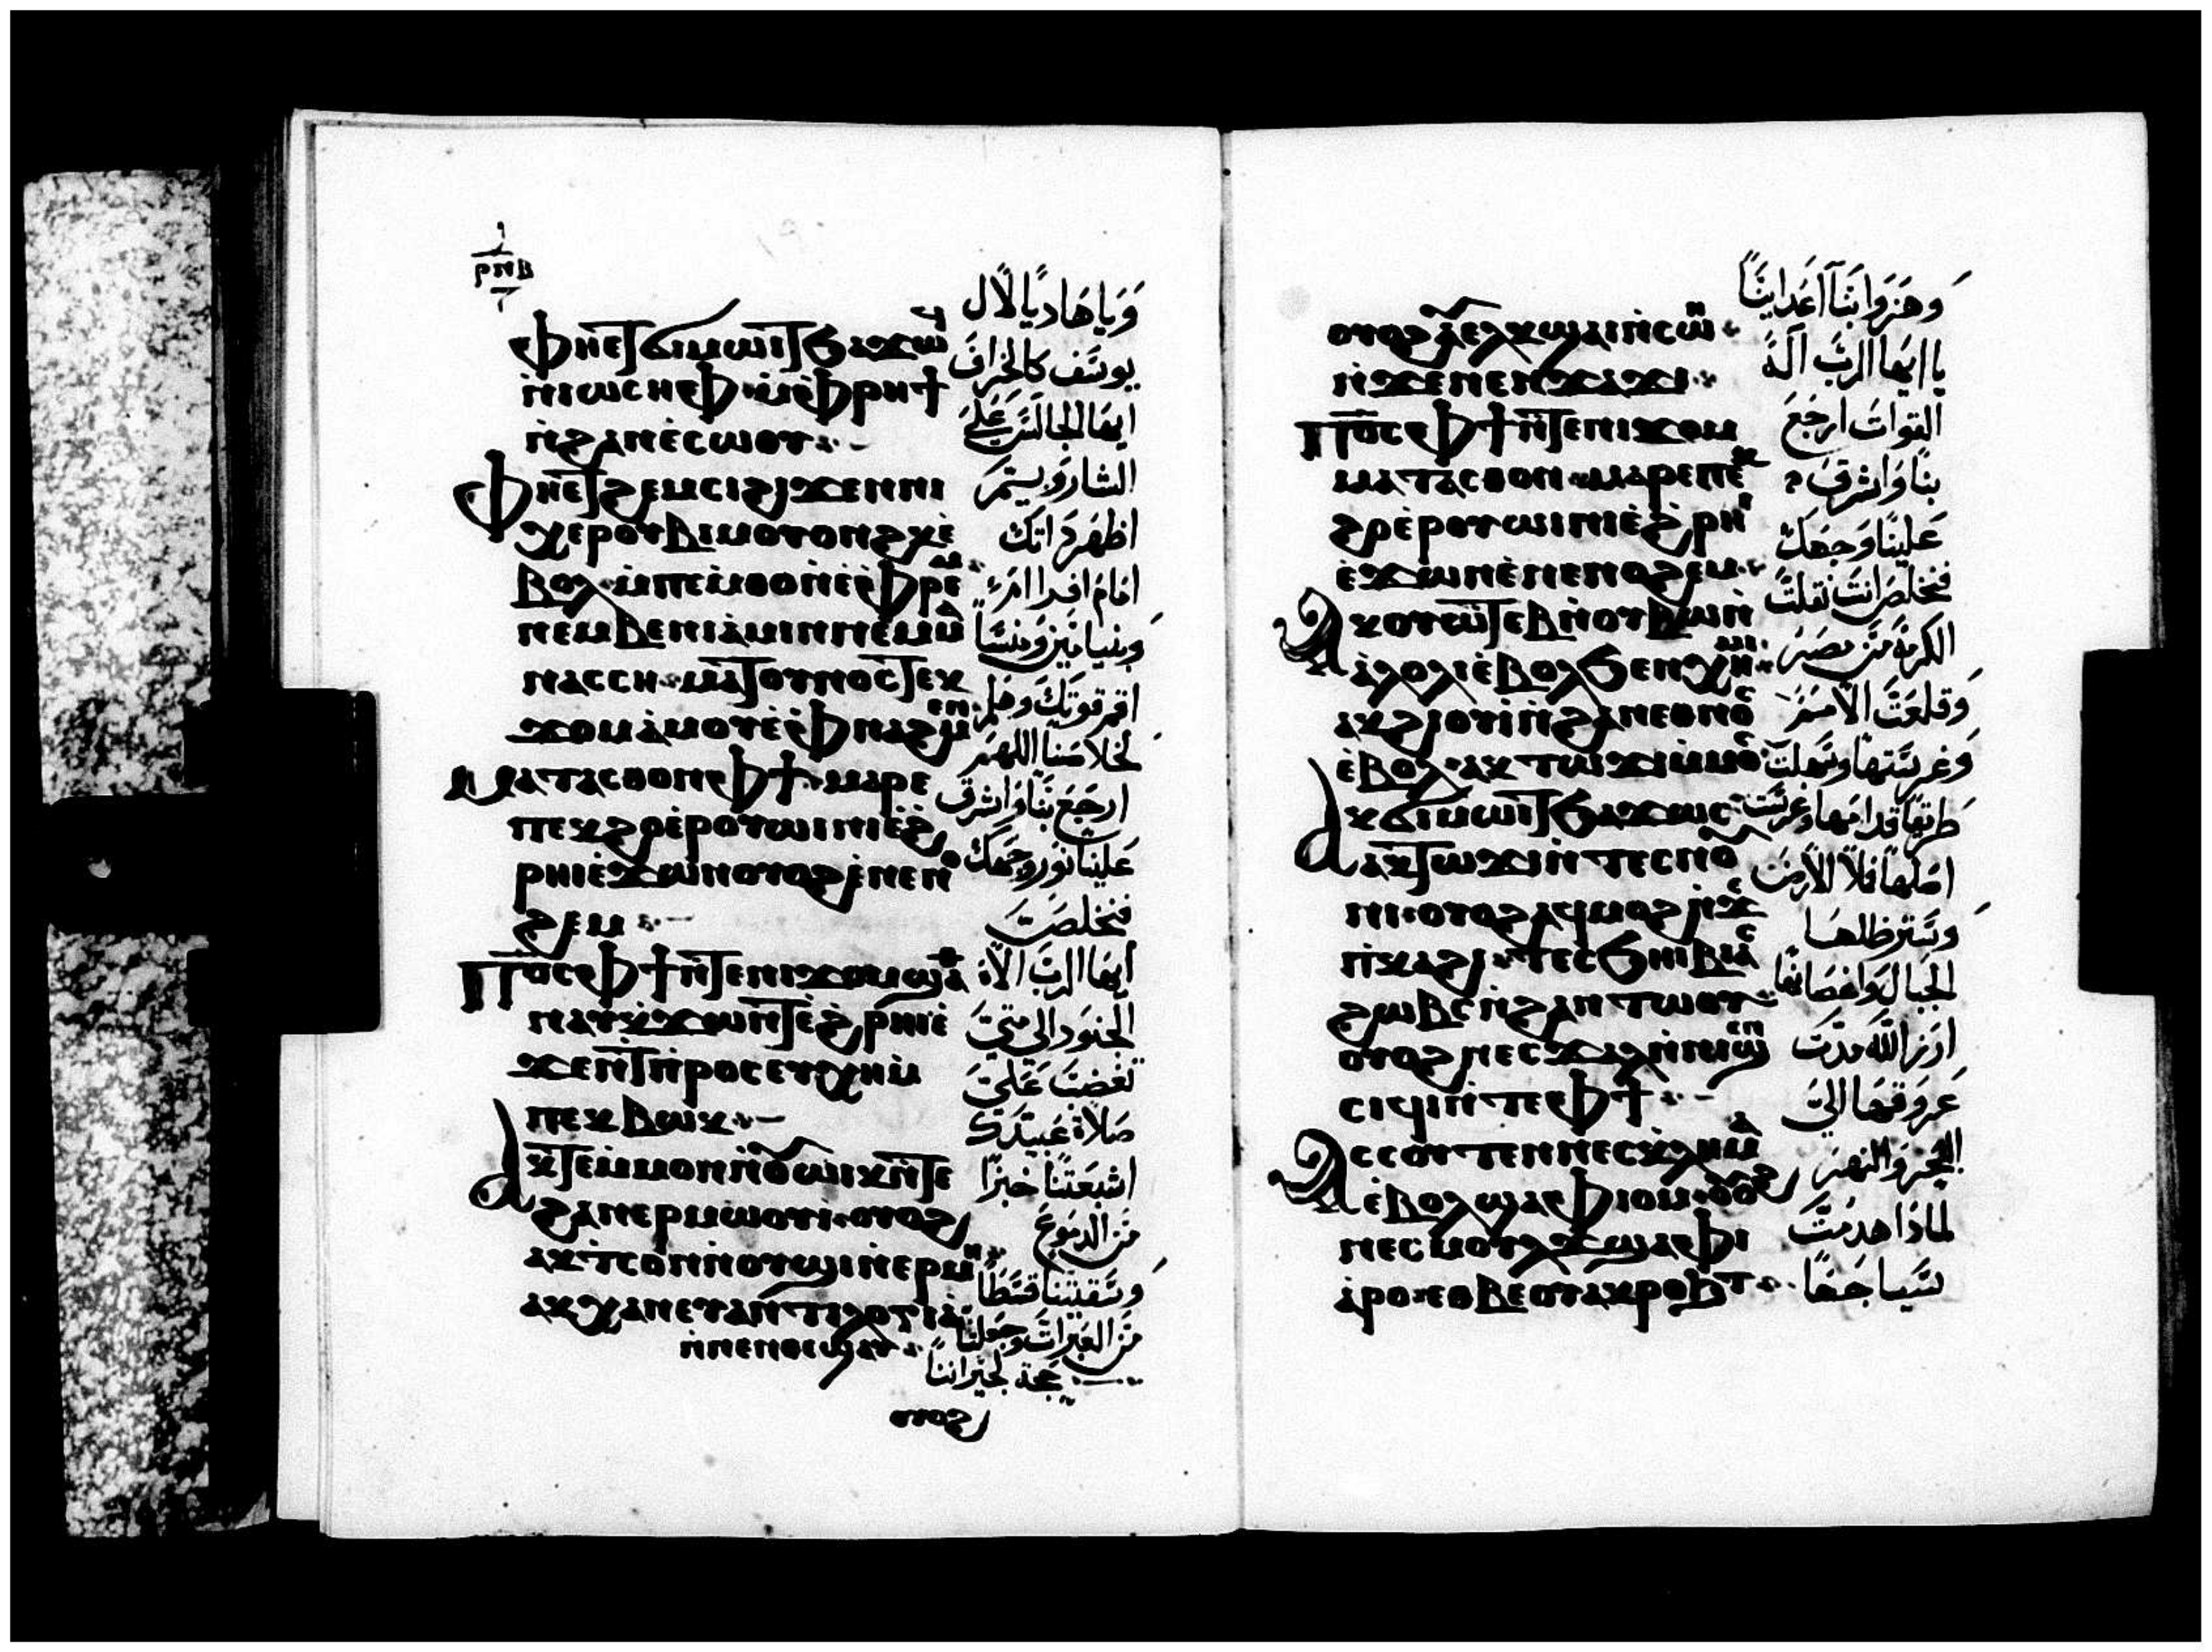 ⲣⲛⲃ
ⲫⲏⲉⲧϭⲓⲙⲱⲓⲧϧⲁϫⲱϥ
ⲛ̀ⲓⲱⲥⲏⲫ·ⲙ̀ⲫⲣⲏϯ
ⲛ̀ϩⲁⲛⲉ̀ⲥⲱⲟⲩ
ⲫⲏⲉⲧϩⲉⲙⲥⲓϩⲓϫⲉⲛⲛⲓ
ⲭⲉⲣⲟⲩⲃⲓⲙⲟⲩⲟⲛϩⲕⲉ̀
ⲃⲟⲗ·ⲙ̀ⲡⲉⲙ̀ⲑⲟⲛ̀ⲉ̀ⲫⲣⲉⲙ
ⲛⲉⲙⲃⲉⲛⲓⲁ̀ⲙⲓⲛⲛⲉⲙⲙⲁ
ⲛⲁⲥⲥⲏ·ⲙⲁⲧⲟⲩⲛⲟⲥⲧⲉⲕ
ϫⲟⲙⲁ̀ⲙⲟⲩⲉ̀ⲫⲛⲁϩⲙⲉⲛ
ⲙⲁⲧⲁⲥⲑⲟⲛⲫϯ·ⲙⲁⲣⲉ
ⲡⲉⲕϩⲟⲉⲣⲟⲩⲱⲓⲛⲓⲉ̀ϩ
ⲣⲏⲓⲉ̀ϫⲱⲛⲟⲩⲟϩⲉ̀ⲛⲉⲛⲟ
ϩⲉⲙ
ⲡ⳪ⲫϯⲛ̀ⲧⲉⲛⲓϫⲟⲙϣⲁ
ⲛⲁⲩⲕ̀ϫⲱⲛⲧⲉ̀ϩⲣⲏⲓⲉ̀
ϫⲉⲛϯⲡⲣⲟⲥⲉⲩⲭⲏⲙ̀
ⲡⲉⲕⲃⲱⲕ
ⲁⲕⲧⲉⲙⲙⲟⲛⲛ̀ⲟⲩⲱⲓⲕⲛ̀ⲧⲉ
ϩⲁⲛⲉⲣⲙⲱⲟⲩⲓ·ⲟⲩⲟϩ
ⲁⲕⲧⲥⲟⲛⲛ̀ⲟⲩϣⲓⲛ̀ⲉⲣⲙⲏ
ⲁⲕⲭⲁⲛⲉⲩⲁⲛⲧⲓⲗⲟⲅⲓⲁ
ⲛ̀ⲛⲉⲛⲑⲉϣⲉⲩ
وَيَا هَاديًا لاَل
يوسَف كالخراف
ايهَا الجالسَ عَلي
الشاروبيم
اظهَر ذاتك
امَام افرا امَ
وبنيامَين ومنسَّا
اقم قوتك وهلم
لخلاصَنا اللهمَ
ارجَع بنَا وَاشرق
عَلينا نور وَجهَك
فنخلصَ
أيهَا الربَ الاه
الجنوَد الى متَى
تغضبَ عَلىَ
صَلاة عَبيدَك
اشبَعتنا خبزًا
مَن الدمَوع
وَسَقيتنا قسَطًا
مَن العَبراتَ وجَعلتنا
عجة لجيراننا
ⲟⲩⲟϩ
ⲟⲩⲟϩⲁ̀ⲉⲗⲕϣⲁⲓⲛ̀ⲥⲱⲛ
ⲛ̀ϫⲉⲛⲉⲛϫⲁϫⲓ
ⲡ⳪ⲫϯⲛ̀ⲧⲉⲛⲓϫⲟⲙ
ⲙⲁⲧⲁⲥⲑⲟⲛ·ⲙⲁⲣⲉⲡⲉⲕ
ϩⲟⲉⲣⲟⲩⲱⲓⲛⲓⲉ̀ϩⲣⲏⲓ
ⲉ̀ϫⲱⲛⲉ̀ⲛⲉⲛⲟϩⲉⲙ
ⲁⲕⲟⲩⲱⲧⲉⲃⲛ̀ⲟⲩⲃⲱⲛ̀
ⲁ̀ⲗⲟⲗⲓⲉ̀ⲃⲟⲗϧⲉⲛⲭⲏⲙⲓ
ⲁⲕϩⲓⲟⲩⲓ̀ⲛ̀ϩⲁⲛⲉⲑⲛⲟⲥ
ⲉ̀ⲃⲟⲗ·ⲁⲕⲧⲱϫⲓⲙ̀ⲙⲟⲥ
ⲁⲕϭⲓⲙⲱⲓⲧϧⲁϫⲱⲥ
ⲁⲕⲧⲱϫⲓⲛ̀ⲧⲉⲥⲛⲟ
ⲛⲓ·ⲟⲩⲟϩⲁϥⲙⲟϩⲛ̀ϫⲉ
ⲡⲓⲕⲁϩⲓ·ⲧⲉⲥϧⲏⲓⲃⲓⲁⲥ
ϩⲱⲃⲥⲛ̀ϩⲁⲛⲧⲱⲟⲩ
ⲟⲩⲟϩⲛⲉⲥϫⲁⲗⲛ̀ⲛⲓϣⲉⲛ
ⲥⲓϥⲓⲛ̀ⲧⲉⲫϯ
ⲁⲥⲥⲟⲩⲧⲉⲛⲛⲉⲥⲕ̀ⲗⲏⲙⲁ
ⲉ̀ⲃⲟⲗϣⲁⲫⲓⲟⲙ·ⲟⲩⲟϩ
ⲛⲉⲥⲙⲟⲩⲗϫϣⲁⲫⲓ
ⲁⲣⲟ·ⲉⲑⲃⲉⲟⲩⲁⲕⲣⲟϧⲧ
وَهزوَا بنَا اعَداينَا
يا ايهَا الربَ آلَه
القواتَ ارجَعَ
بنَا وَاشرق
عَلينَا وَجهَك
فنخلصَ انتَ نقلتَ
الكرمَة مَن مصَرَ
وَقلعَتَ الاممَ
وَغرسَتها وسَهلتَ
طريقًا قدامَها وغرستَ
اصَلهَا فلا الارضَ
وسَترَ ظلهَا
الجبَال وَاغصَانهَا
ارز اللهَ مدتَ
عَروَقهَا الىَ
البحَر وَالنهَر
لماذا هدمتَ
سَياجَهَا